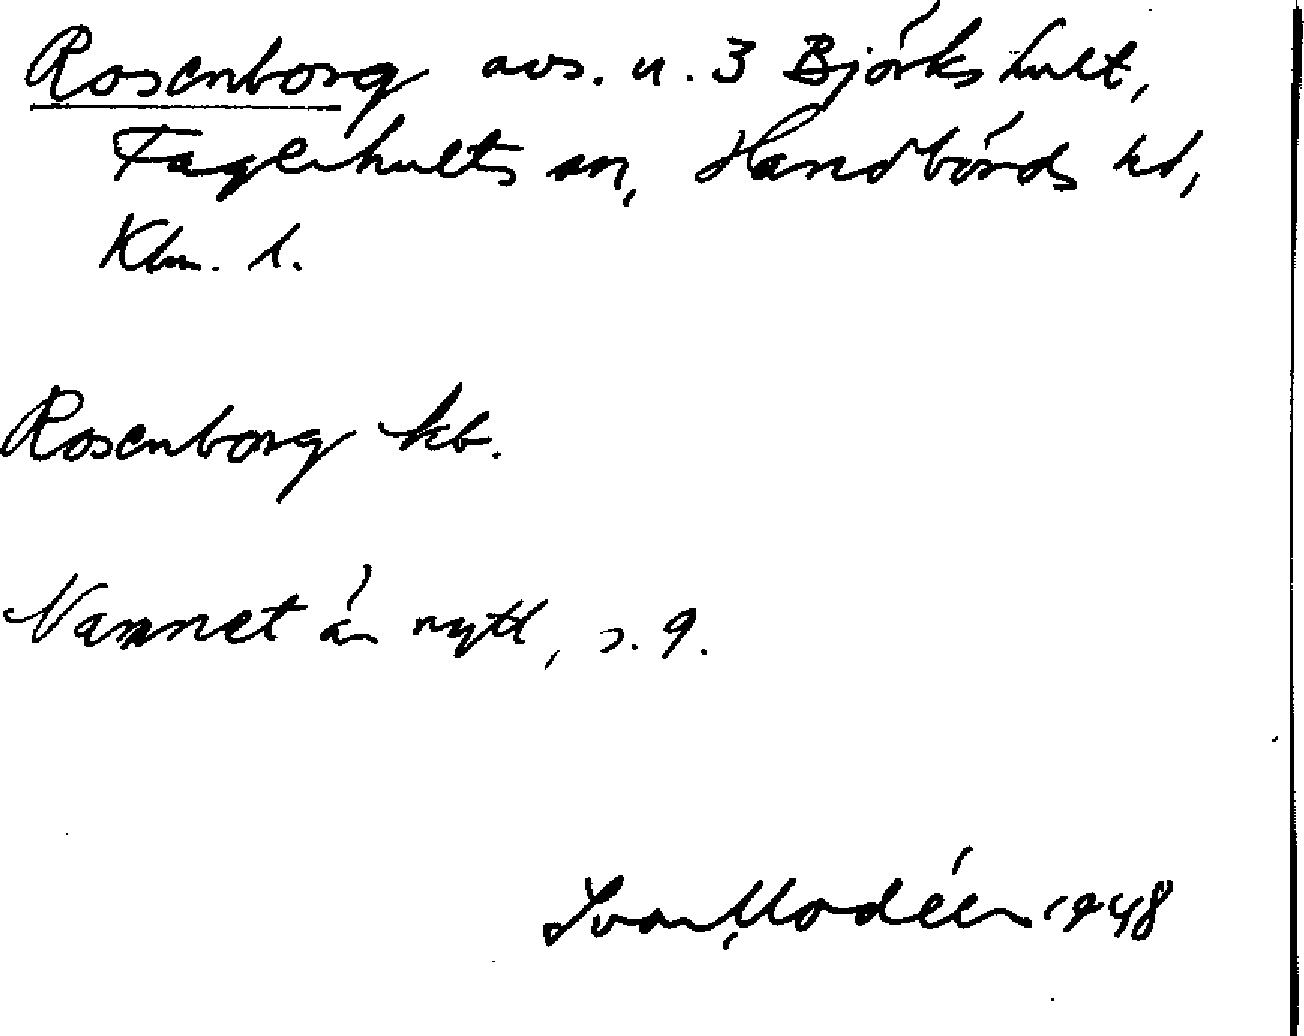 Rosenborg avs. u. 3 Björkshult,
Fagerhults sn, Handbörds hd,
Klm. l.
Rosenborg kb.
Namnet är nytt, s. 9.
Ivar Modéer 1948